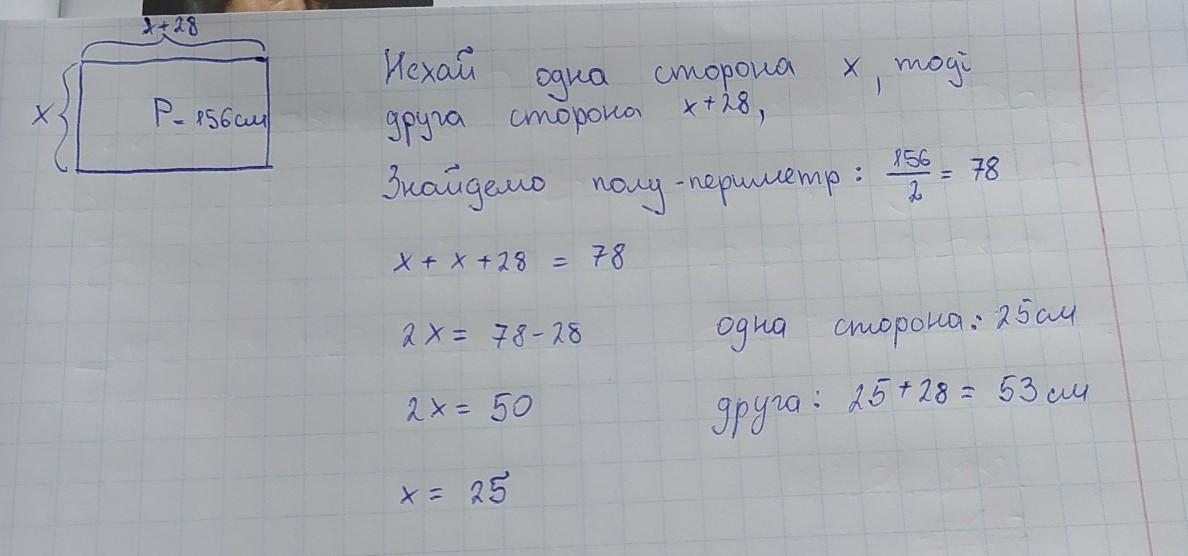 x+28
x
P = 156см
Нехай одна сторона x, тоді
друга сторона x+28,
Знайдемо полу-периметр: 156/2 = 78
x + x +28 = 78
2x = 78-28
одна сторона: 25см
2x = 50
друга: 25+28 = 53см
x = 25